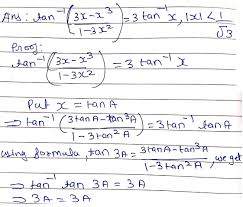 Ans: tan⁻¹(3x-x³/1-3x²) = 3 tan⁻¹ x, |x| < 1/√3
Proof:
tan⁻¹(3x-x³/1-3x²) = 3 tan⁻¹ x
Put x = tan A
⇒ tan⁻¹(3tanA-tan³A/1-3tan²A) = 3tan⁻¹ tanA
using formula, tan 3A = 3tanA-tan³A/1-3tan²A, we get
⇒ tan⁻¹ tan 3A = 3A
⇒ 3A = 3A